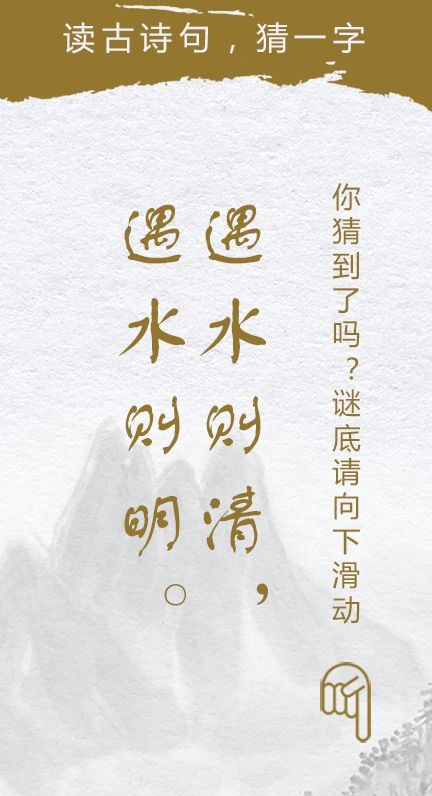 读古诗句，猜一字
你猜到了吗？谜底请向下滑动
遇水则清，
遇水则明。